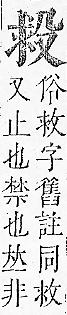 俗救字舊註同救
又止也禁也𠀤非